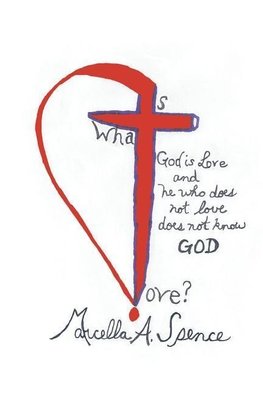 Is
What
God is Love
and
he who does
not love
does not know
GOD
Love?
Marcella A. Spence